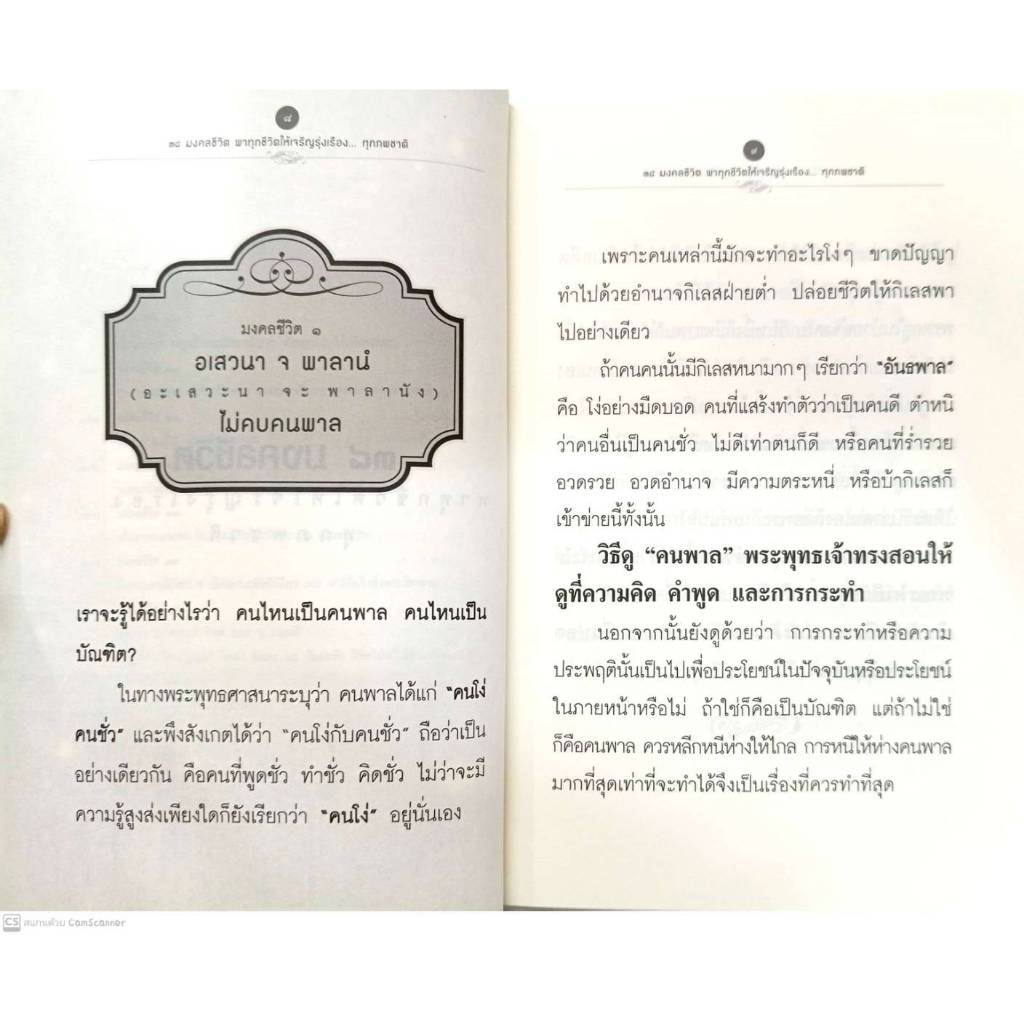 ๘
๓๘ มงคลชีวิต พาทุกชีวิตให้เจริญรุ่งเรือง... ทุกภพชาติ
มงคลชีวิต ๑
อเสวนา จ พาลานํ
(อะเสวะนา จะ พาลานัง)
ไม่คบคนพาล
เราจะรู้ได้อย่างไรว่า คนไหนเป็นคนพาล คนไหนเป็น
บัณฑิต?
ในทางพระพุทธศาสนาระบุว่า คนพาลได้แก่ “คนโง่
คนชั่ว” และพึงสังเกตได้ว่า “คนโง่กับคนชั่ว” ถือว่าเป็น
อย่างเดียวกัน คือคนที่พูดชั่ว ทำชั่ว คิดชั่ว ไม่ว่าจะมี
ความรู้สูงส่งเพียงใดก็ยังเรียกว่า “คนโง่” อยู่นั่นเอง
๙
๓๘ มงคลชีวิต พาทุกชีวิตให้เจริญรุ่งเรือง... ทุกภพชาติ
เพราะคนเหล่านี้มักจะทำอะไรโง่ๆ ขาดปัญญา
ทำไปด้วยอำนาจกิเลสฝ่ายต่ำ ปล่อยชีวิตให้กิเลสพา
ไปอย่างเดียว
ถ้าคนคนนั้นมีกิเลสหนามากๆ เรียกว่า “อันธพาล”
คือ โง่อย่างมืดบอด คนที่แสร้งทำตัวว่าเป็นคนดี ตำหนิ
ว่าคนอื่นเป็นคนชั่ว ไม่ดีเท่าตนก็ดี หรือคนที่ร่ำรวย
อวดรวย อวดอำนาจ มีความตระหนี่ หรือบ้ากิเลสก็
เข้าข่ายนี้ทั้งนั้น
วิธีดู “คนพาล” พระพุทธเจ้าทรงสอนให้
ดูที่ความคิด คำพูด และการกระทำ
นอกจากนั้นยังดูด้วยว่า การกระทำหรือความ
ประพฤตินั้นเป็นไปเพื่อประโยชน์ในปัจจุบันหรือประโยชน์
ในภายหน้าหรือไม่ ถ้าใช่ก็คือเป็นบัณฑิต แต่ถ้าไม่ใช่
ก็คือคนพาล ควรหลีกหนีห่างให้ไกล การหนีให้ห่างคนพาล
มากที่สุดเท่าที่จะทำได้จึงเป็นเรื่องที่ควรทำที่สุด
CS สแกนด้วย CamScanner